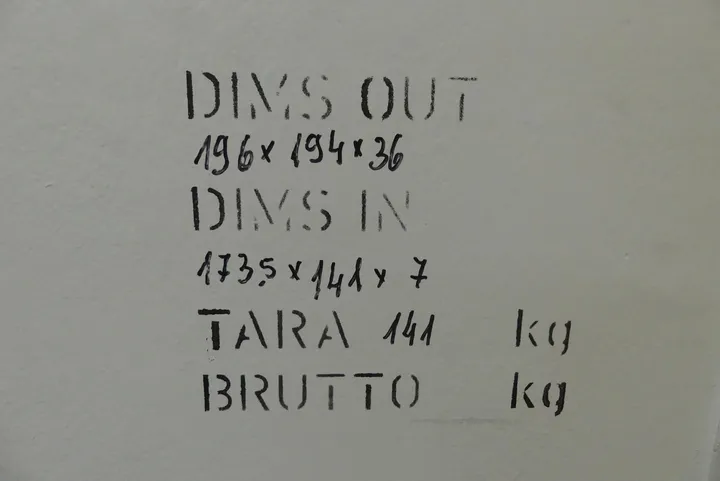 DIMS OUT
196 x 194 x 36
DIMS IN
173,5 x 141 x 7
TARA 141 kg
BRUTTO kg